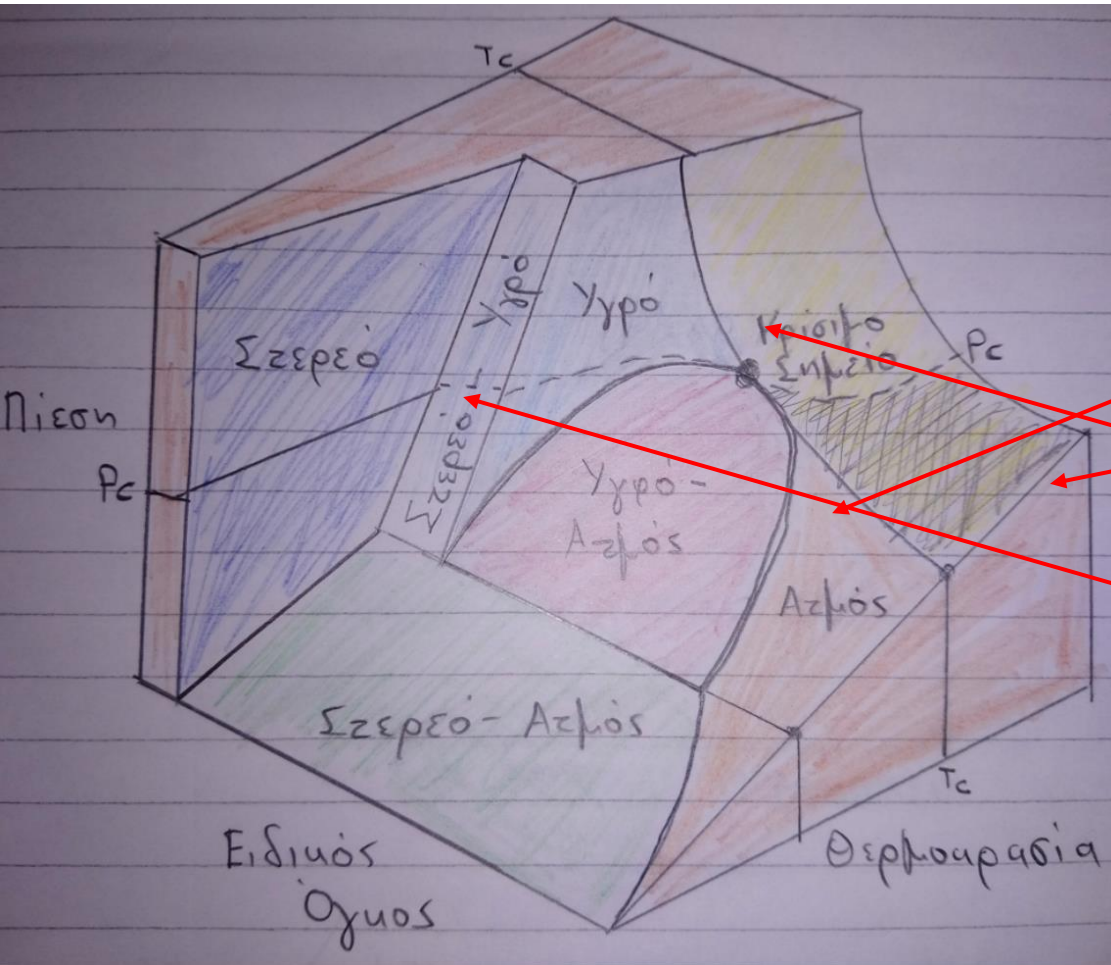 Tc
Στερεό
Στερεό -
Υγρό
Υγρό
Κρίσιμο
Σημείο
Pc
Πίεση
Pc
Υγρό -
Ατμός
Ατμός
Στερεό - Ατμός
Tc
Ειδικός
Όγκος
Θερμοκρασία